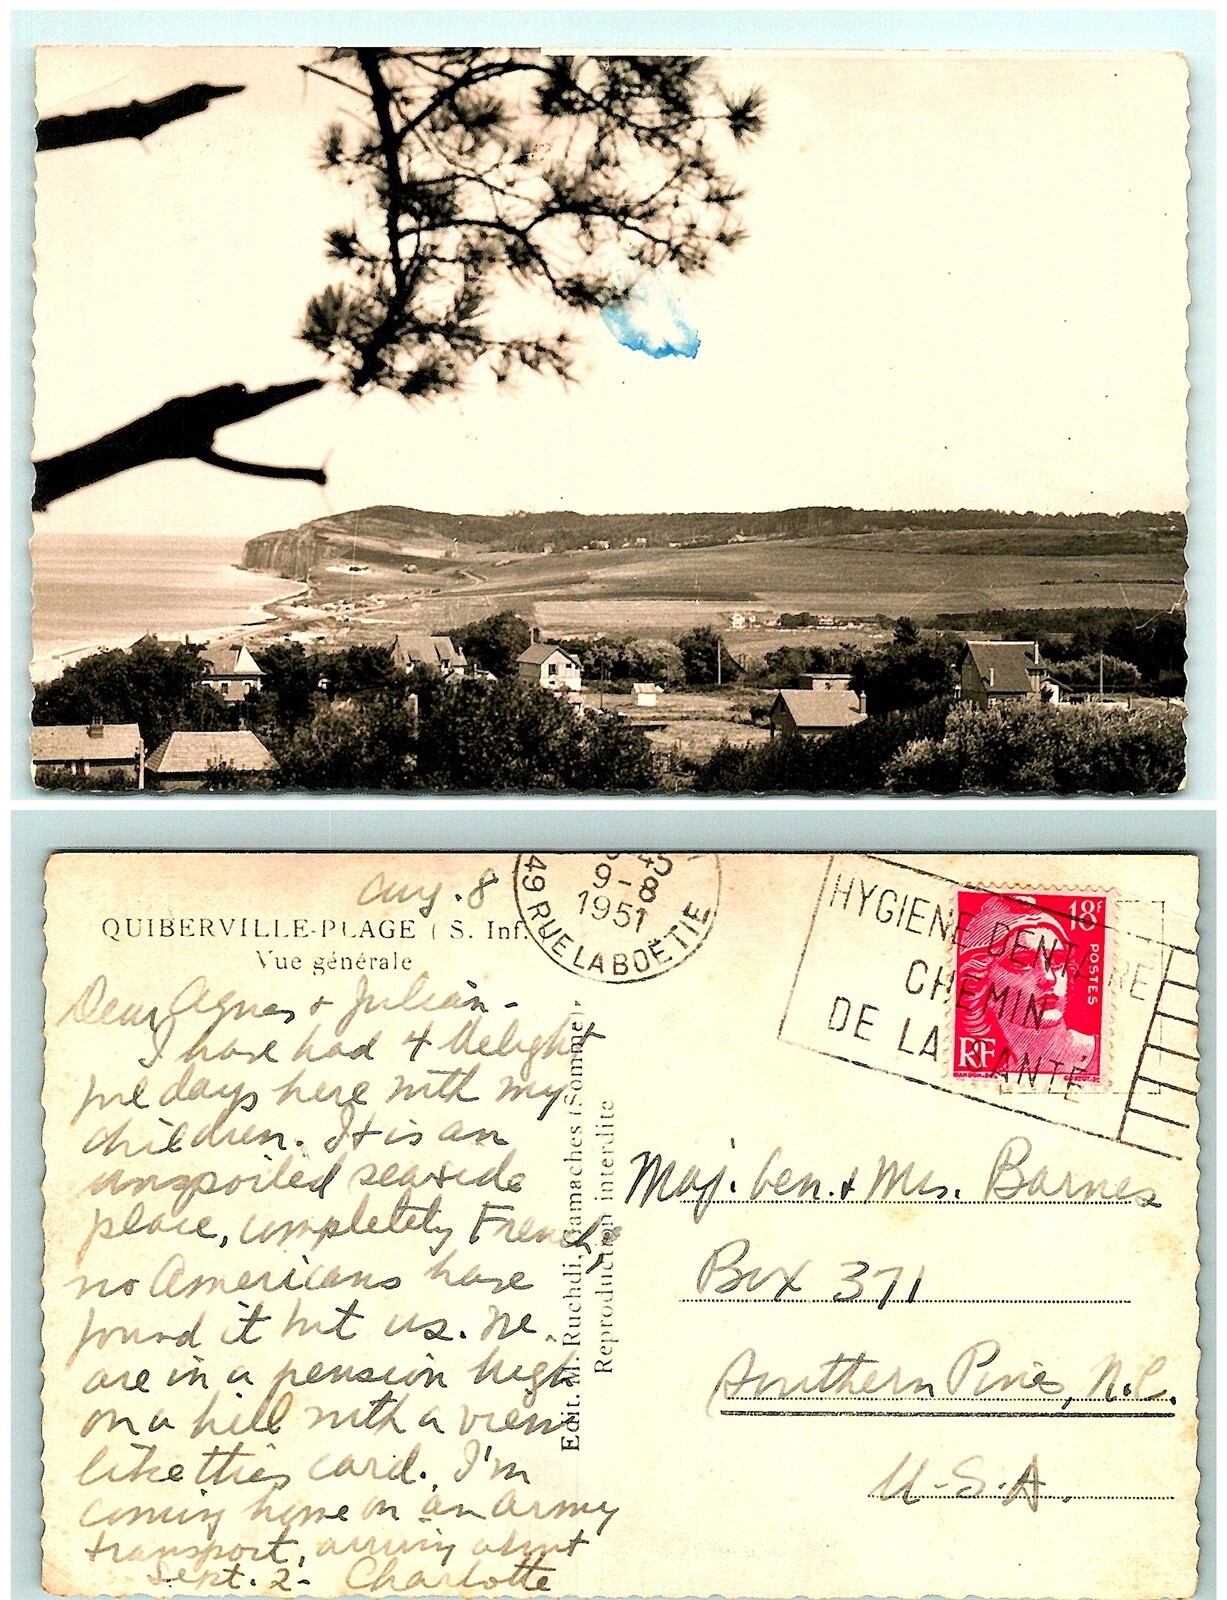 Aug. 8
QUIBERVILLE-PLAGE (S. Inf.
Vue générale
Dear Agnes & Julian -
I have had 4 delight
ful days here with my
children. It is an
unspoiled seaside
place, completely French,
no Americans have
found it but us. We
are in a pension high
on a hill with a view
like this card. I'm
coming home on an army
transport, arriving about
Sept. 2 - Charlotte
Edit. M. Ruchdi, Gamaches (Somme).
Reproduction interdite
9-8
1951
49 RUE LA BOËTIE
HYGIENE DENTAIRE
CHEMIN
DE LA SANTÉ
18F
POSTES
RF
Maj. Gen. & Mrs. Barnes
Box 371
Southern Pines, N.C.
U.S.A.